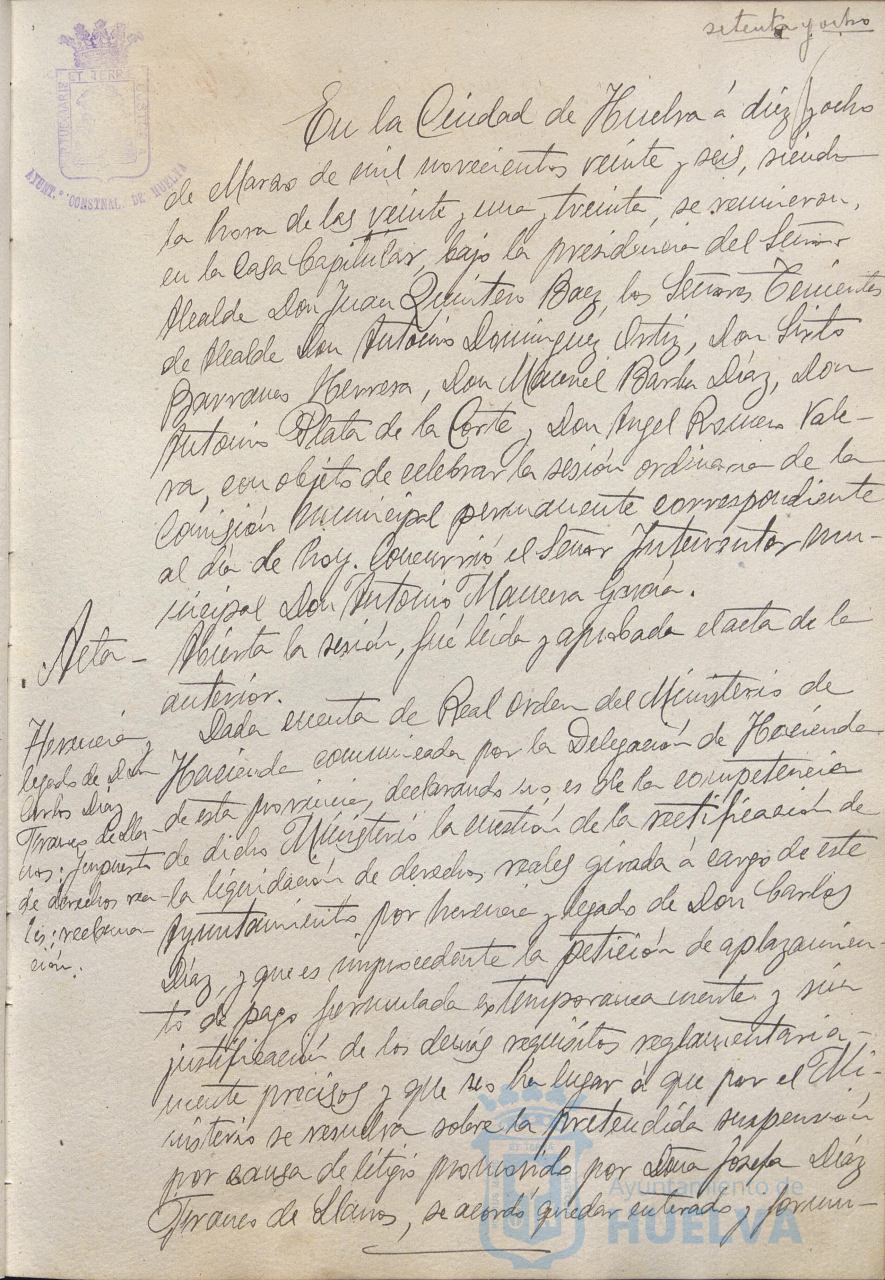 setenta y ocho
ET TERRE
AYUNT.º CONSTNAL. DE HUELVA
En la Ciudad de Huelva á diez y ocho
de Marzo de mil novecientos veinte y seis, siendo
la hora de las veinte y una y treinta, se reunieron,
en la Casa Capitular, bajo la presidencia del Señor
Alcalde Don Juan Quintero Baez, los Señores Tenientes
de Alcalde Don Antonio Dominguez Ortiz, Don Sixto
Barranco Herrera, Don Manuel Barba Díaz, Don
Antonio Plata de la Corte y Don Angel Romero Vale-
ra, con objeto de celebrar la sesión ordinaria de la
Comisión Municipal permanente correspondiente
al día de hoy. Concurrió el Señor Interventor mu-
nicipal Don Antonio Marcera García.
Acta-
Abierta la sesión, fué leida y aprobada el acta de la
anterior.
Herencia y
legado de Don
Carlos Díaz
Franco de Lla-
nos: Impuesto
de derechos rea-
les; reclama-
ción.
Dada cuenta de Real Orden del Ministerio de
Hacienda comunicada por la Delegación de Hacienda
de esta provincia, declarando no es de la competencia
de dicho Ministerio la cuestión de la rectificación de
la liquidación de derechos reales girada á cargo de este
Ayuntamiento por herencia y legado de Don Carlos
Díaz, y que es improcedente la petición de aplazamien-
to de pago formulada extemporaneamente y sin
justificación de los demás requisitos reglamentaria-
mente precisos y que no ha lugar á que por el Mi-
nisterio se resuelva sobre la pretendida suspensión
por causa de litigio promovido por Doña Josefa Díaz
Franco de Llanos, se acordó quedar enterado y formu-
Ayuntamiento de
HUELVA